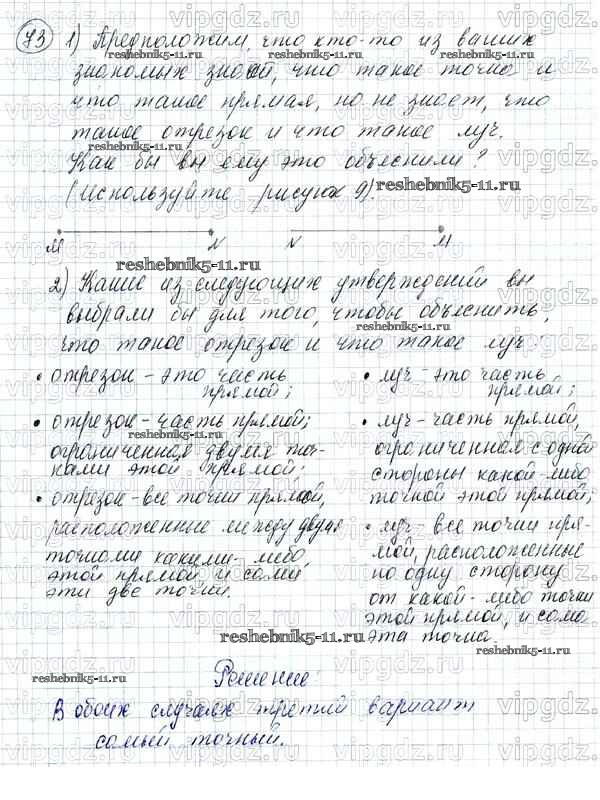 73
1) Предположим, что кто-то из ваших
знакомых знает, что такое точка и
что такое прямая, но не знает, что
такое отрезок и что такое луч.
Как бы вы ему это объяснили?
(Используйте рисунок 9).
M N N M
2) Какие из следующих утверждений вы
выбрали бы для того, чтобы объяснить,
что такое отрезок и что такое луч
• отрезок - это часть
прямой;
• отрезок - часть прямой;
ограниченная двумя точ-
ками этой прямой;
• отрезок - все точки прямой,
расположенные между двумя
точками какими-либо
этой прямой и сами
эти две точки.
• луч - это часть
прямой;
• луч - часть прямой,
ограниченная с одной
стороны какой-либо
точкой этой прямой;
• луч - все точки пря-
мой, расположенные
по одну сторону
от какой-либо точки
этой прямой, и сама
эта точка.
Решение:
В обоих случаях третий вариант
самый точный.
vipgdz.com
reshebnik5-11.ru